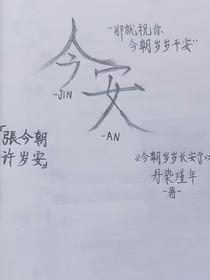 "那就祝你
今朝岁岁平安"
今
-JIN
安
-AN
「張今朝
许岁安」
《今朝岁岁长安宁》
丹染瑾年
-著-